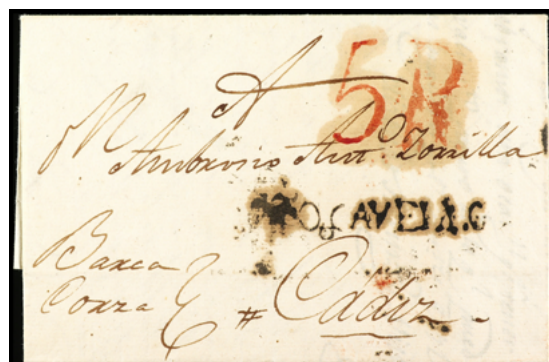 5R
A
Dn Ambrosio Anto. Zorrilla
CAVELLO
Barca
Corza
# Cadiz